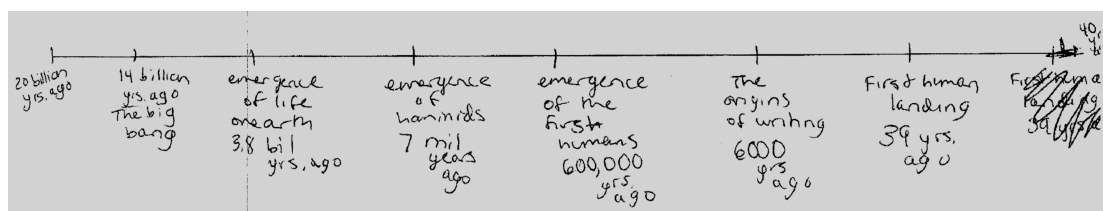 20 billion
yrs. ago
14 billion
yrs. ago
The big
bang
emergence
of life
on earth
3.8 bil
yrs. ago
emergence
of
haninids
7 mil
years
ago
emergence
of the
first
humans
600,000
yrs.
ago
The
origins
of writing
6000
yrs
ago
First human
landing
39 yrs.
ago
First huma
landing
39 yrs
40,